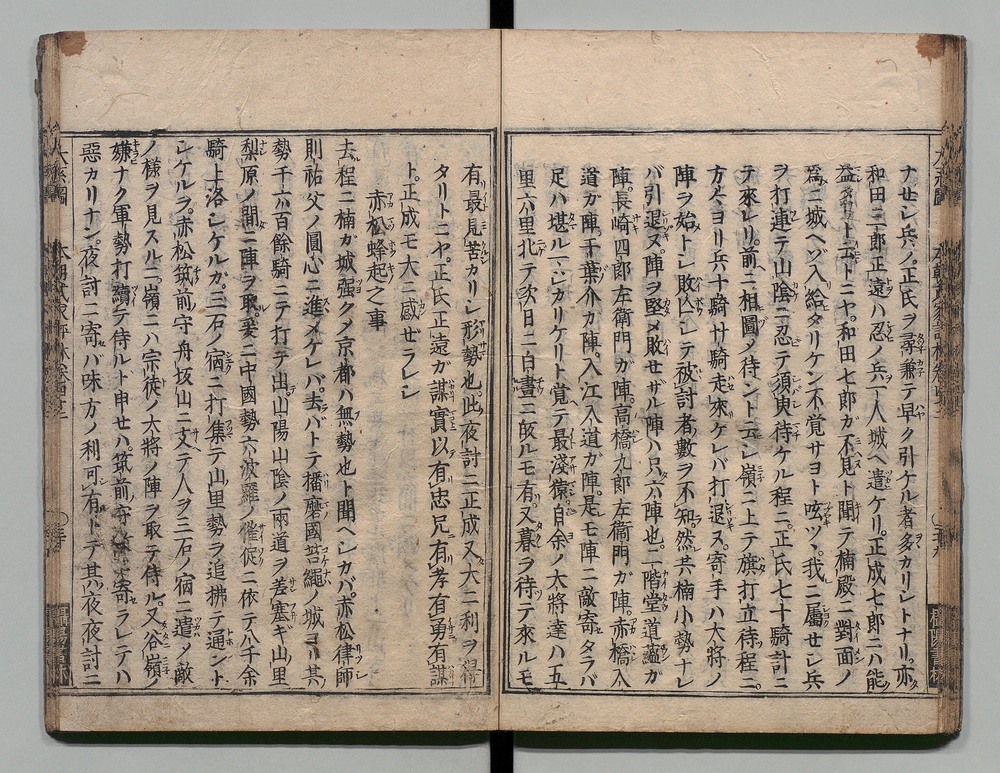 ナセシ兵ノ正氏ヲ尋兼テ早ク引ケル者多カリントナリ亦
和田二郎正遠ハ忍ノ兵一人城ヘ遣ケリ正成七郎ニハ能
益多トムトニヤ和田七郎ガ不見ト聞テ楠殿ニ對面ノ
爲ニ城ヘソ入給タリケン不覚サヨト呟ツヽ我ニ屬セシ兵
ヲ打連テ山陰ニ忍テ須臾待ケル程ニ正氏七十騎計ニ
テ來レリ前ニ相圖ノ待ントニ云シ嶺ニ上テ旗打立待程ニ
方々ヨリ兵十騎廿騎走來ケレバ打退ス寄手ハ大將ノ
陣ヲ始トシ敗亡シテ被討者數ヲ不知然共楠小勢ナレ
バ引退ヌ陣ヲ堅メ敗セザル陣ハ只六陣也二階堂道蘊ガ
陣長崎四郎左衞門ガ陣高橋九郎左衞門ガ陣赤橋入
道ガ陣千葉介カ陣入江入道ガ陣是モ陣ニ敵寄タラバ
足ハ堪ルマシカリケリト覚テ最淺猿自余ノ大將達ハ五
里六里北テ次日ニ白晝ニ皈ルモ有又暮ヲ待テ來ルモ
有最見苦カリシ形勢也此夜討ニ正成又大ニ利ヲ得
タリトニヤ正氏正遠ガ謀實以有忠兄有孝有勇有謀
ト正成モ大ニ感セラレシ
赤松蜂起之事
去程ニ楠ガ城强クメ京都ハ無勢也ト聞ヘシカバ赤松律師
則祐父ノ圓心ニ進メケレバ去バトテ播磨國苔繩ノ城ヨリ其
勢千六百餘騎ニテ打テ出山陽山陰ノ兩道ヲ差塞ギ山里
梨原ノ間ニ陣ヲ取爰ニ中國勢六波羅ノ催促ニ依テ八千余
騎上洛シケルガ三石ノ宿ニ打集テ山里勢ヲ追拂テ通ント
シケルヲ赤松筑前守舟坂山ニ支テ人ヲ三石ノ宿ニ遣メ敵
ノ樣ヲ見スルニ嶺ニハ宗徒ノ大將ノ陣ヲ取テ侍ル又谷嶺ノ
嫌ナク軍勢打續テ侍ルト申セハ筑前守寄ラレテハ
惡カリナン夜討ニ寄バ味方ノ利可有トテ其夜夜討ニ